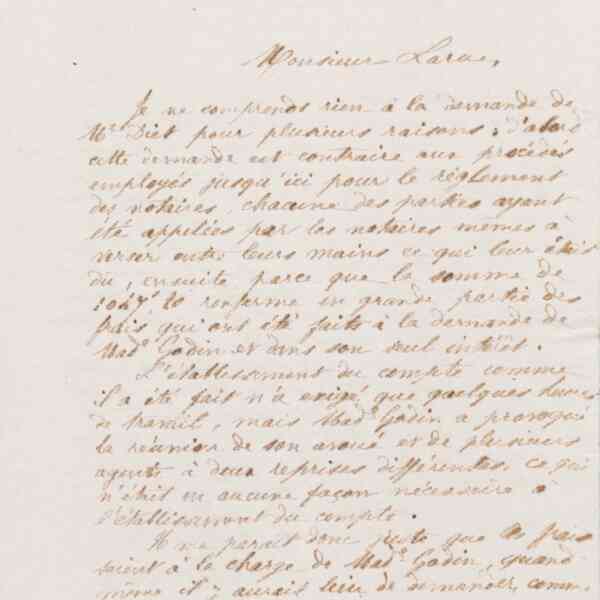 Monsieur Larue,
Je ne comprends rien à la demande de
Mr Diet pour plusieurs raisons ; d'abord
cette demande est contraire aux procédés
employés jusqu'ici pour le règlement
des notaires, chacune des parties ayant
été appelées par les notaires mêmes à
verser entre leurs mains ce qui leur était
dû, ensuite parce que la somme de
renferme en grande partie des
frais qui ont été faits à la demande de
Made Godin et dans son seul intérêt.
L'établissement du compte comme
il a été fait n'a exigé que quelques heures
de travail, mais Made Godin a provoqué
la réunion de son avoué et de plusieurs
agents à deux reprises différentes, ce qui
n'était en aucune façon nécessaire à
l'établissement du compte.
Il me parait donc juste que ces frais
soient à la charge de Made Godin, quand
même il y aurait lieu de demander, comme